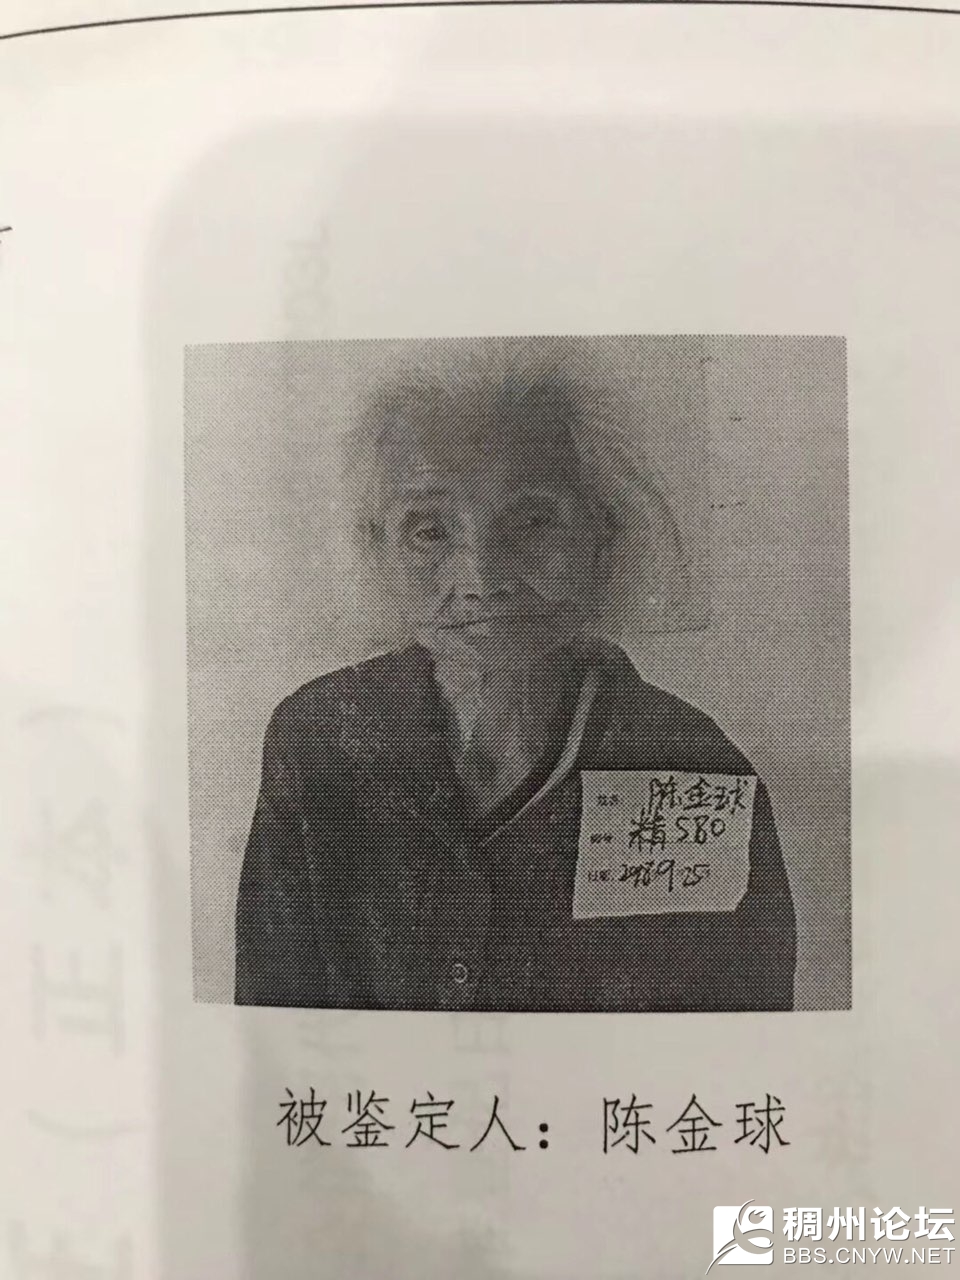 陈金球
精580
2018.9.25
被鉴定人：陈金球
稠州论坛
BBS.CNYW.NET